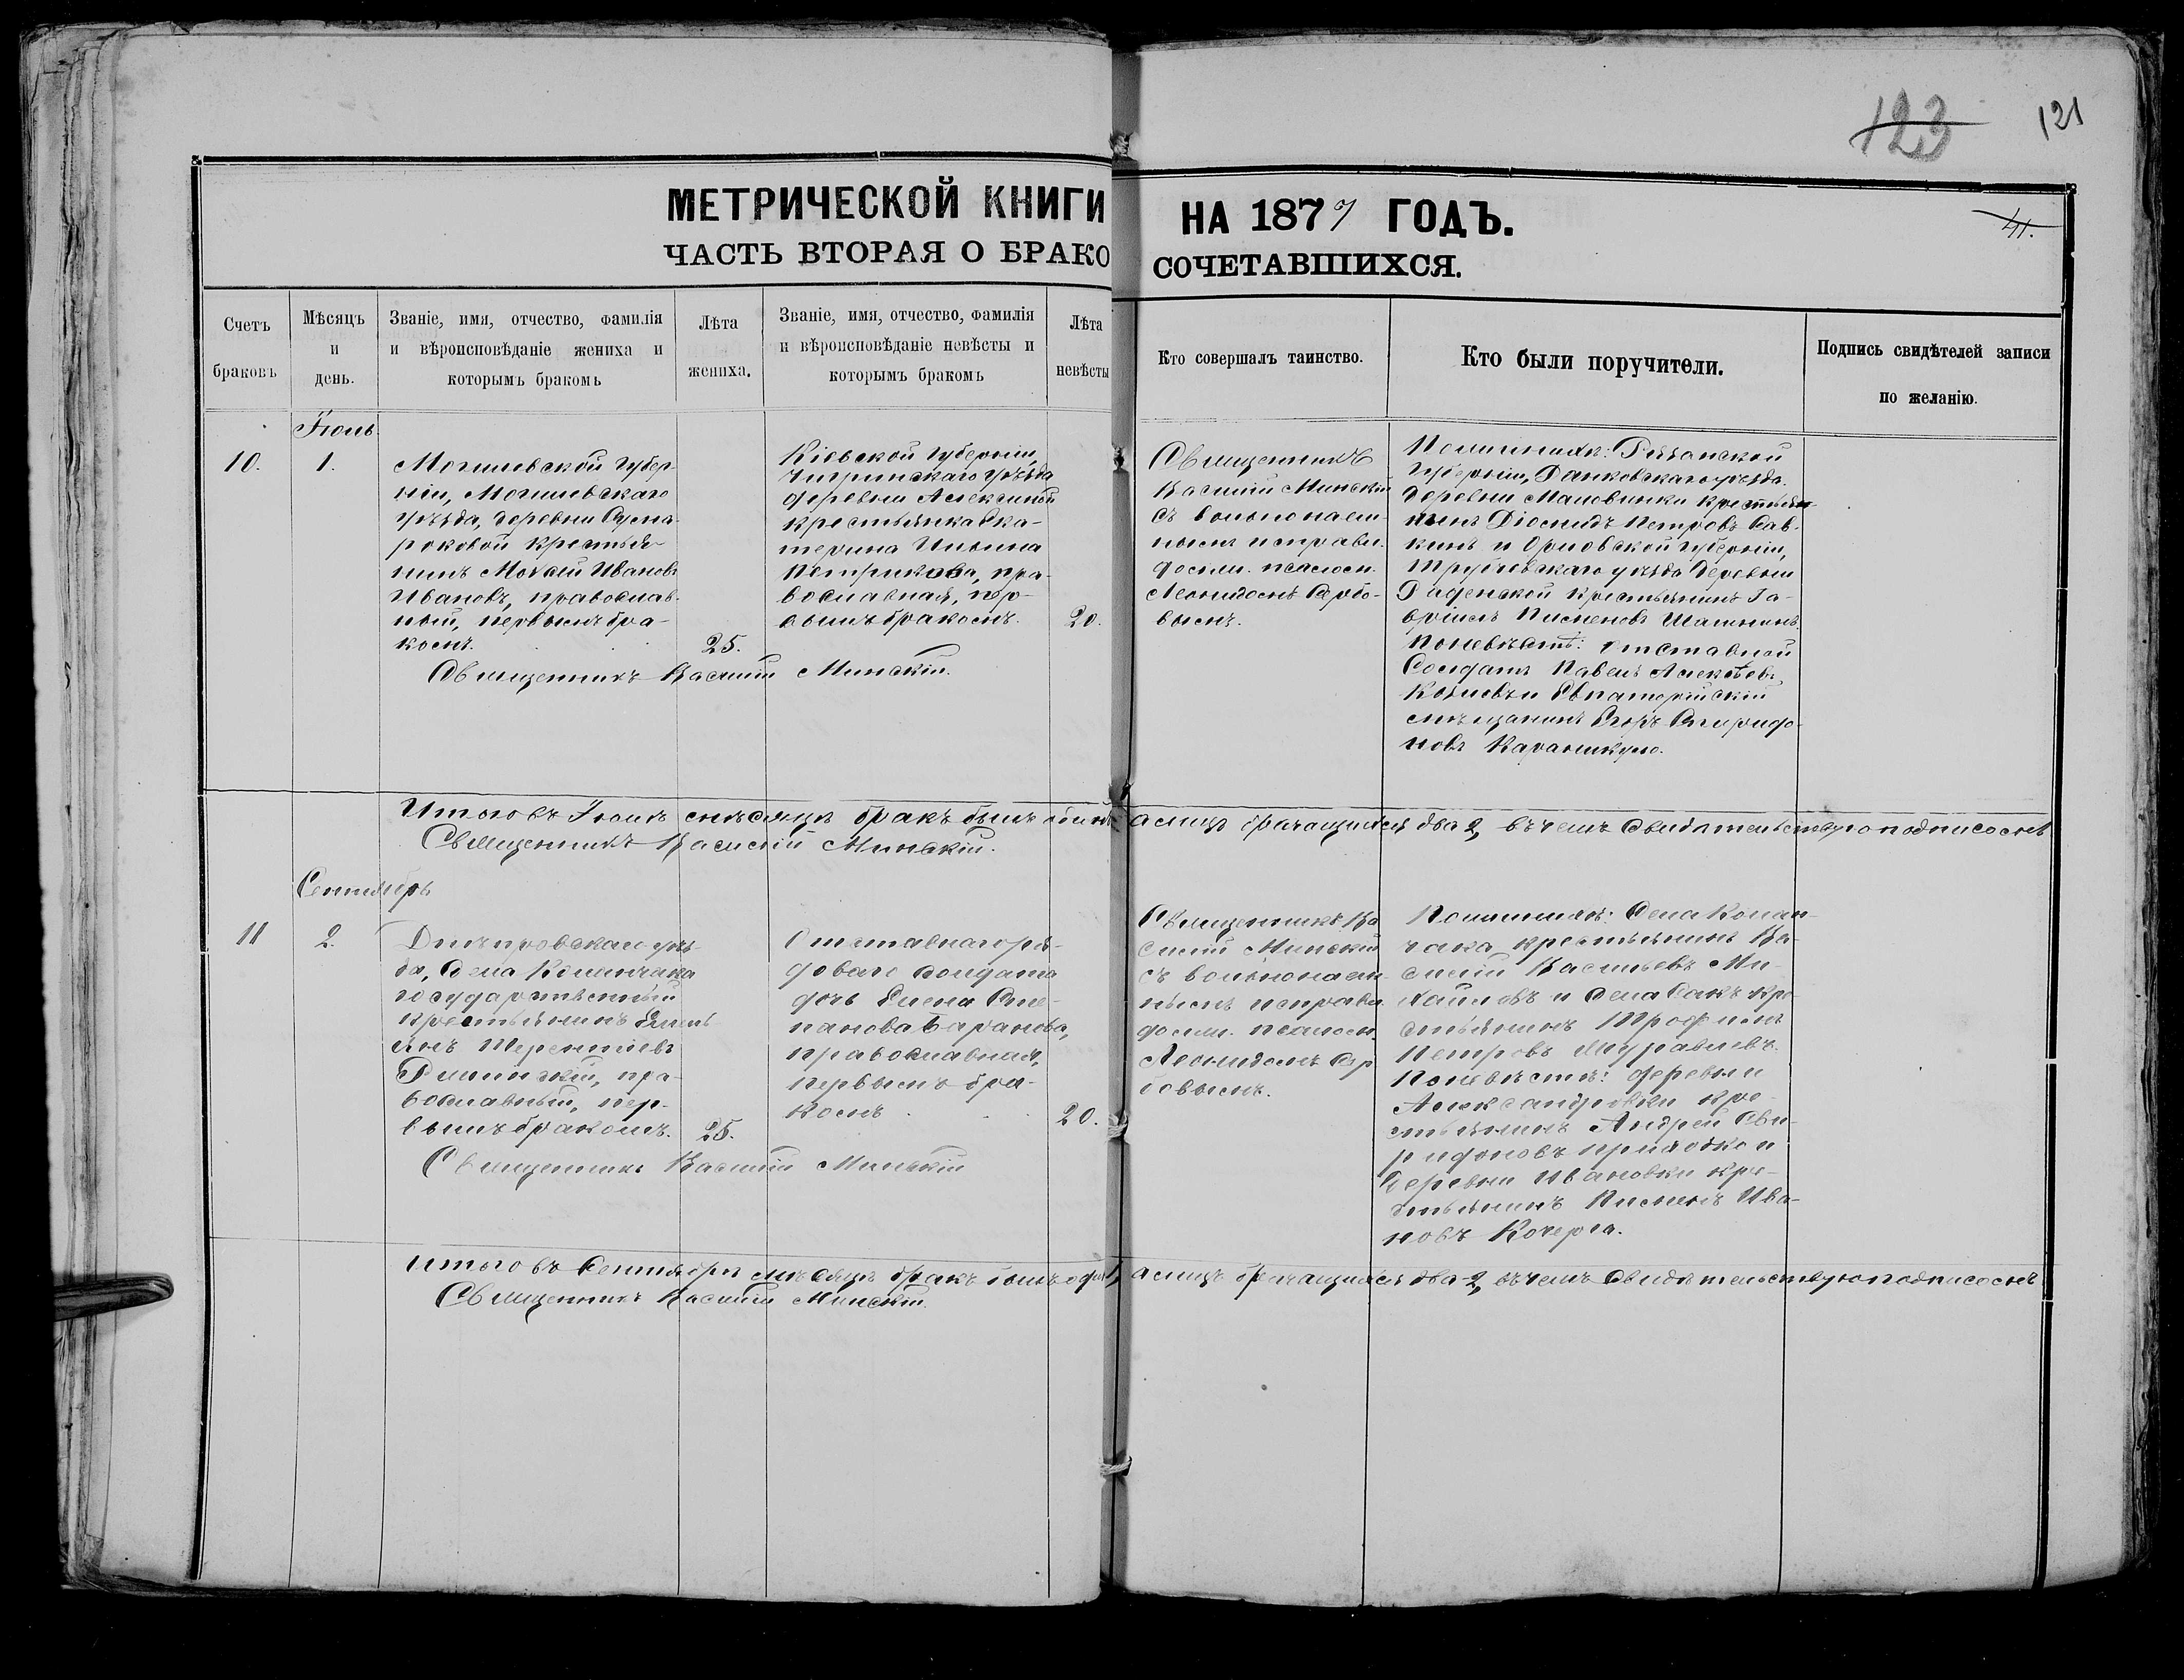 123 121
41.
МЕТРИЧЕСКОЙ КНИГИ НА 1877 ГОДЪ.
ЧАСТЬ ВТОРАЯ О БРАКОСОЧЕТАВШИХСЯ.
Счетъ
браковъ
Мѣсяцъ
и
день.
Званіе, имя, отчество, фамилія
и вѣроисповѣданіе жениха и
которымъ бракомъ
Лѣта
жениха.
Званіе, имя, отчество, фамилія
и вѣроисповѣданіе невѣсты и
которымъ бракомъ
Лѣта
невѣсты
Кто совершалъ таинство.
Кто были поручители.
Подпись свидѣтелей записи
по желанію.
10.
1.
Могилевской губер-
ніи, Могилевскаго
уѣзда, деревни
роковой крестья-
нинъ Мокій Ивановъ
Ивановъ, православ-
ный, первымъ бра-
комъ.
25.
Кіевской губерніи,
Чигринскаго уѣзда
деревни
крестьянка Ека-
терина
пра-
вославная, пер-
вымъ бракомъ.
20.
Священникъ
Василій Минскій
съ вольнонаем-
нымъ исправл.
должн. псаломщ.
Леонидомъ Сербо-
вымъ.
По женихѣ: Рязанской
губерніи, Данковскаго уѣзда.
деревни Маловинки крестьян-
инъ Діомидъ Петровъ Сав-
кинъ и Орловской губерніи,
Трубчевскаго уѣзда деревни
крестьянинъ Га-
вріилъ Пименовъ
По невѣстѣ: отставной
Солдатъ Павелъ Алексѣевъ
и Евпаторійскій
мѣщанинъ Егоръ Спиридо-
новъ
Священникъ Василій Минскій.
Итого въ мѣсяцѣ бракъ былъ одинъ, а лицъ брачащихся два 2, въ чемъ свидѣтельствую подписомъ
Священникъ Василій Минскій.
Сентябрь
11
2.
Днѣпровскаго уѣз-
да, Села Каланчака
государственный
крестьянинъ Емель-
янъ Терентіевъ
пра-
вославный, пер-
вымъ бракомъ.
25.
Отставнаго ря-
доваго Солдата
дочь Елена Сте-
панова Баранова,
православная,
первымъ бра-
комъ
20.
Священникъ Ва-
силій Минскій
съ вольнонаем-
нымъ исправл.
должн. псаломщ.
Леонидомъ Сер-
бовымъ.
По женихѣ: Села Калан-
чака крестьянинъ Ва-
силій Васильевъ Ми-
хайловъ и Села Сакъ кре-
стьянинъ Трофимъ
Петровъ Журавлевъ.
По невѣстѣ: деревни
Александровки кре-
стьянинъ Андрей Сви-
ридоновъ Приходко и
деревни Ивановки кре-
стьянинъ Пименъ Ива-
новъ Кочерга.
Священникъ Василій Минскій
Итого въ Сентябрѣ мѣсяцѣ бракъ былъ одинъ 1, а лицъ брачащихся два 2, въ чемъ свидѣтельствую подписомъ
Священникъ Василій Минскій.